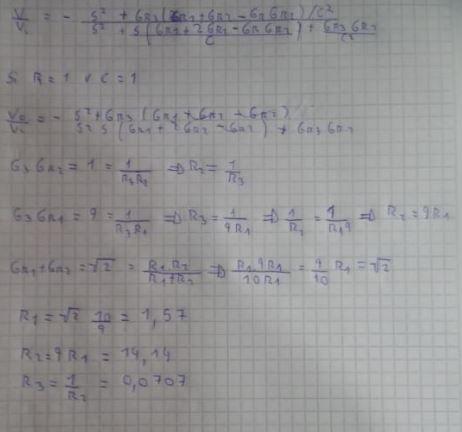 V/Vi = - s² + G_R3 (G_R1 + G_R2 - G_R G_R2)/C² / s² + s (G_R1 + 2G_R2 - G_R G_R2)/C + G_R3 G_R2/C²
Si R = 1 y C = 1
Vo/Vi = - s² + G_R3 (G_R1 + G_R2 - G_R2) / s² s (G_R1 + 2G_R2 - G_R2) + G_R3 G_R2
G_3 G_R2 = 1 = 1/R_3R_2 => R_2 = 1/R_3
G_3 G_R1 = 9 = 1/R_3R_1 => R_3 = 1/9R_1 => 1/R_2 = 1/R_1 9 => R_2 = 9R_1
G_R1 + G_R2 = √2 = R_1 R_2/R_1+R_2 => R_1 9R_1/10R_1 = 9/10 R_1 = √2
R_1 = √2 10/9 = 1,57
R_2 = 9R_1 = 14,14
R_3 = 1/R_2 = 0,0707